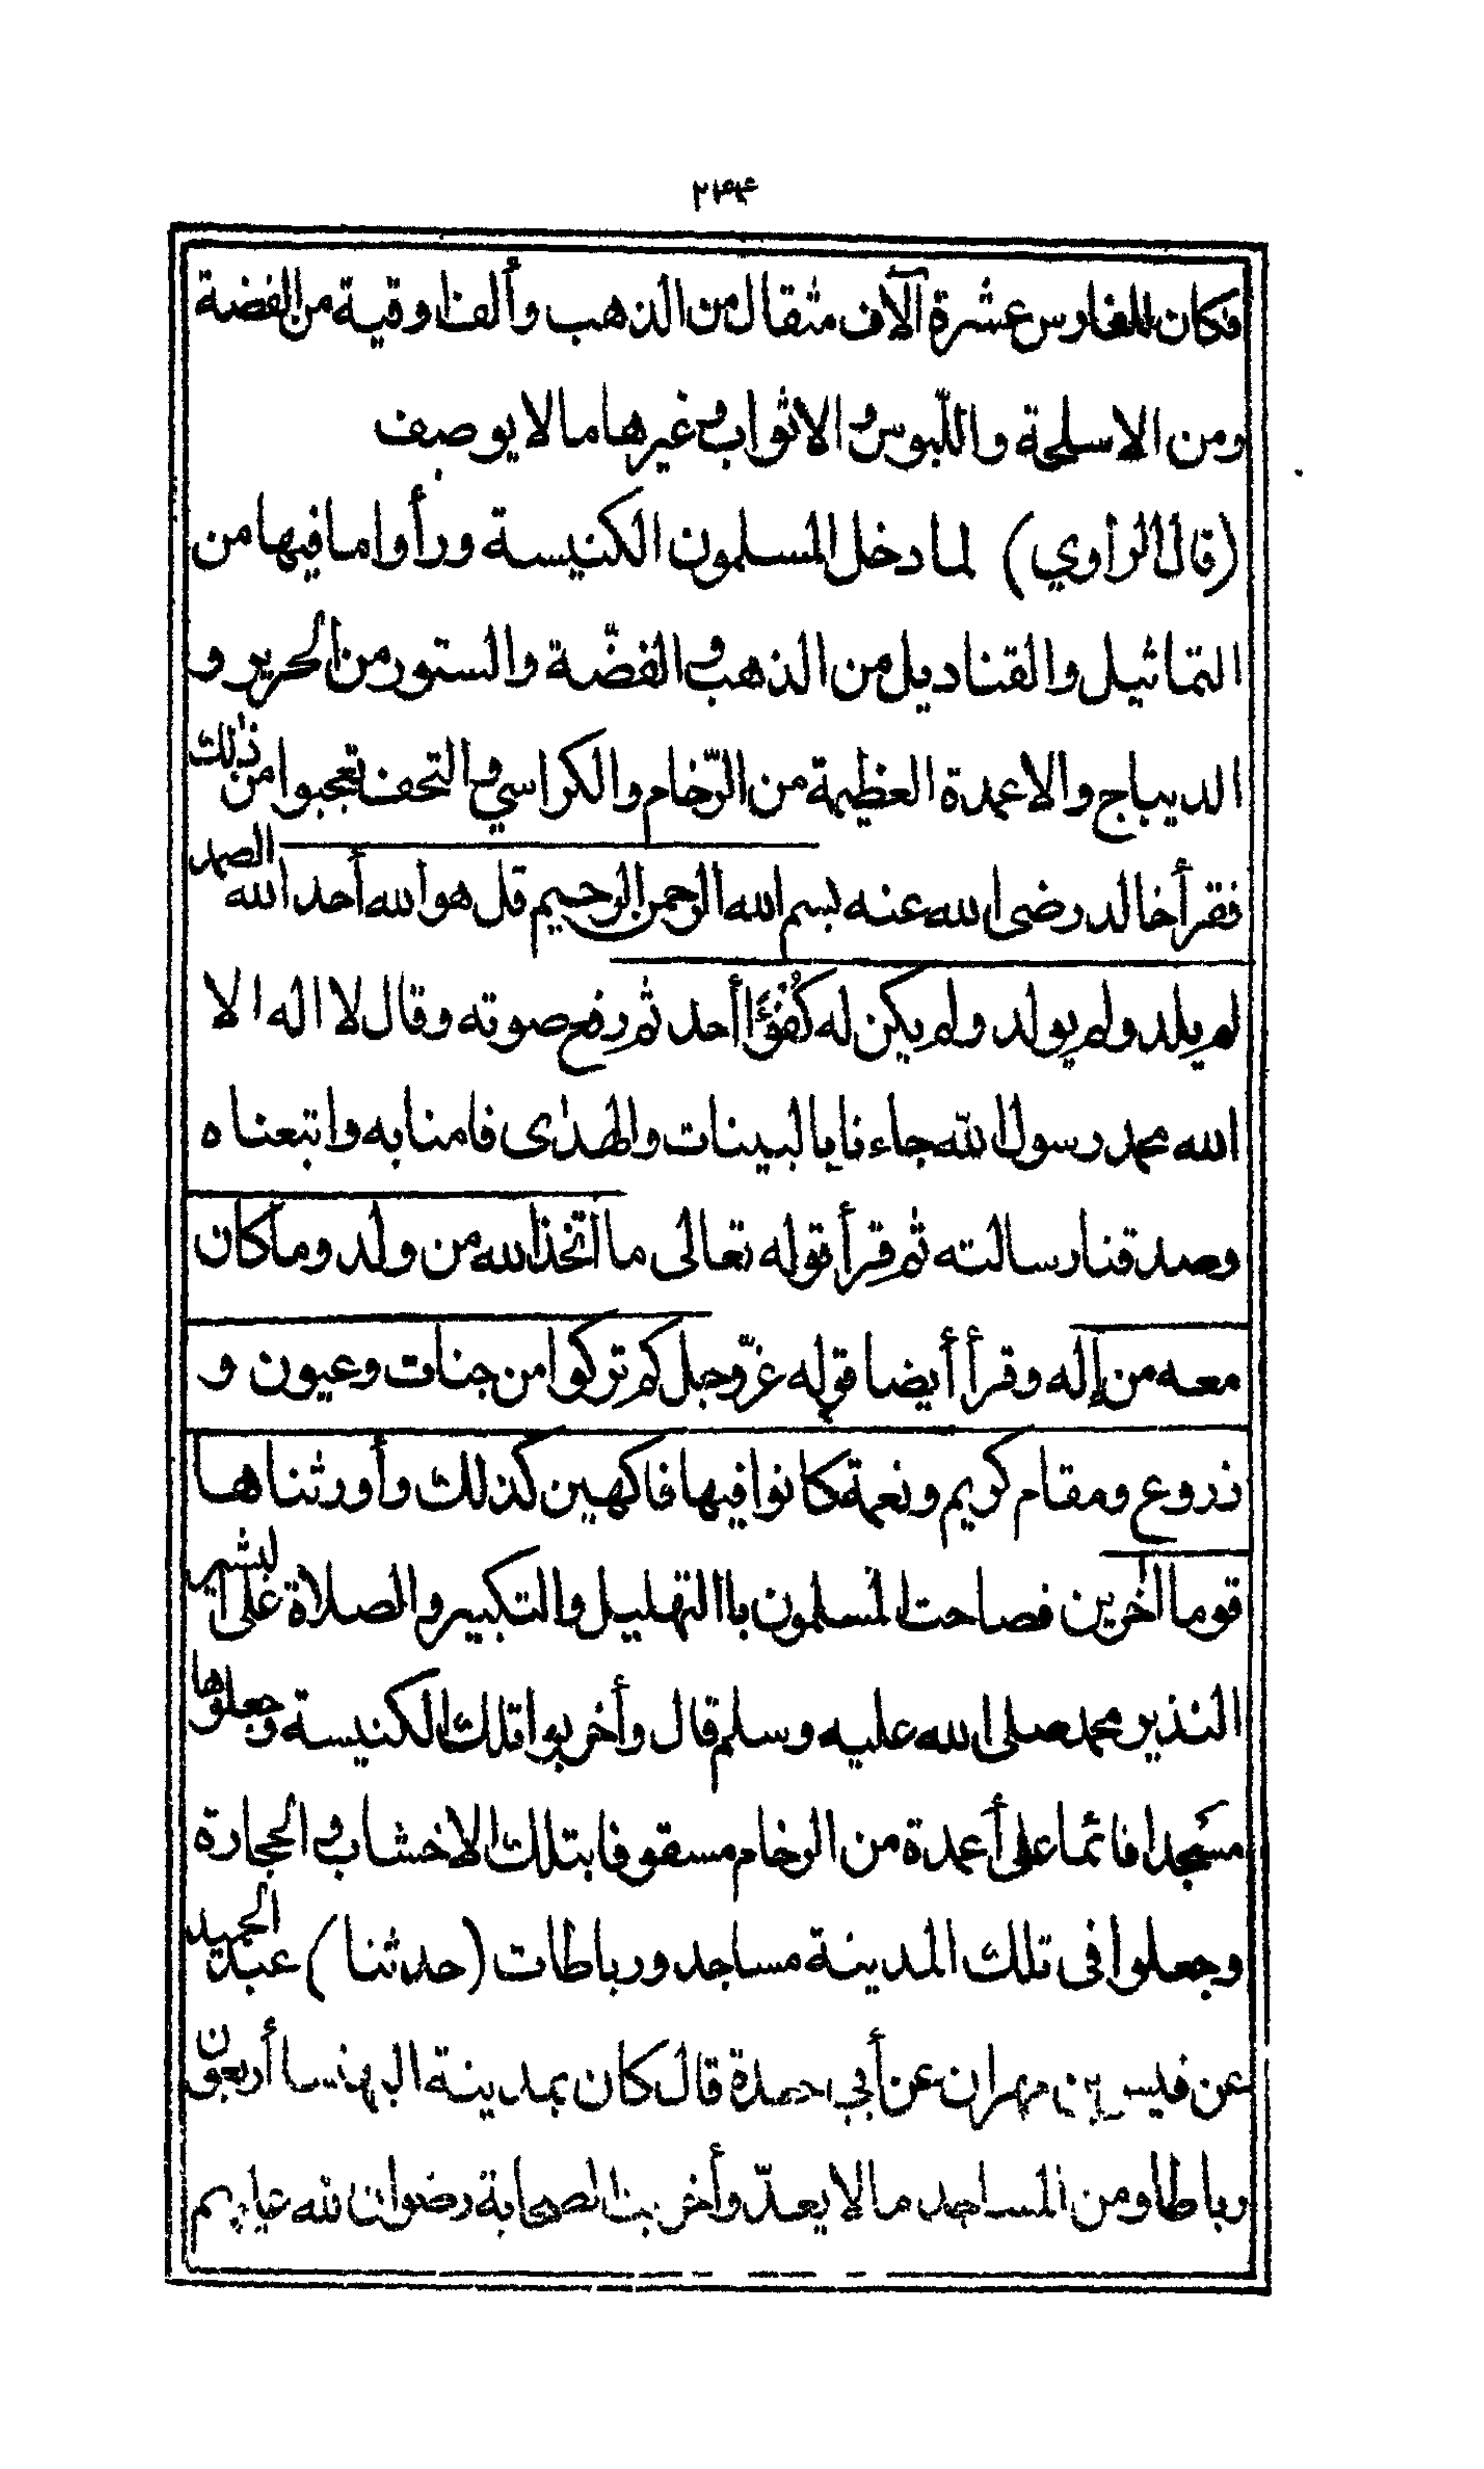 ۲۴۴
فكان للفارس عشرة آلاف مثقال من الذهب وألفا اوقية من الفضة
ومن الاسلحة واللّبوس والاثواب وغيرها مالا يوصف
(قال الراوي) لما دخل المسلمون الكنيسة ورأوا ما فيها من
التماثيل والقناديل من الذهب والفضّة والستور من الحرير و
الديباج والاعمدة العظيمة من الرّخام والكراسي والتحف تعجبوا من ذلك
فقرأ خالد رضى الله عنه بسم الله الرحمن الرحيم قل هو الله أحد الله الصمد
لم يلد ولم يولد ولم يكن له كُفُؤًا أحد ثم رفع صوته وقال لا اله الا
الله محمد رسول الله جاءنا بالبينات والهدى فامنا به واتبعناه
وصدقنا رسالته ثم قرأ قوله تعالى ما اتخذ الله من ولد وما كان
معه من إله وقرأ أيضا قوله عزّ وجل كم تركوا من جنات وعيون و
زروع ومقام كريم ونعمة كانوا فيها فاكهين كذلك وأورثناها
قوما اٰخرين فصاحت المسلمون باالتهليل والتكبير والصلاة على البشير
النذير محمد صلى الله عليه وسلم قال وأخربوا تلك الكنيسة وجعلوها
مسجدا قائما على أعمدة من الرخام مسقوفا بتلك الاخشاب والحجارة
وجعلوا فى تلك المدينة مساجد ورباطات (حدثنا) عبد الحميد
عن مهران عن أبي قال كان بمدينة البهنسا أربعون
رباطا ومن المساجد مالا يعدّ وأخربت الصحابة رضوان الله عليهم